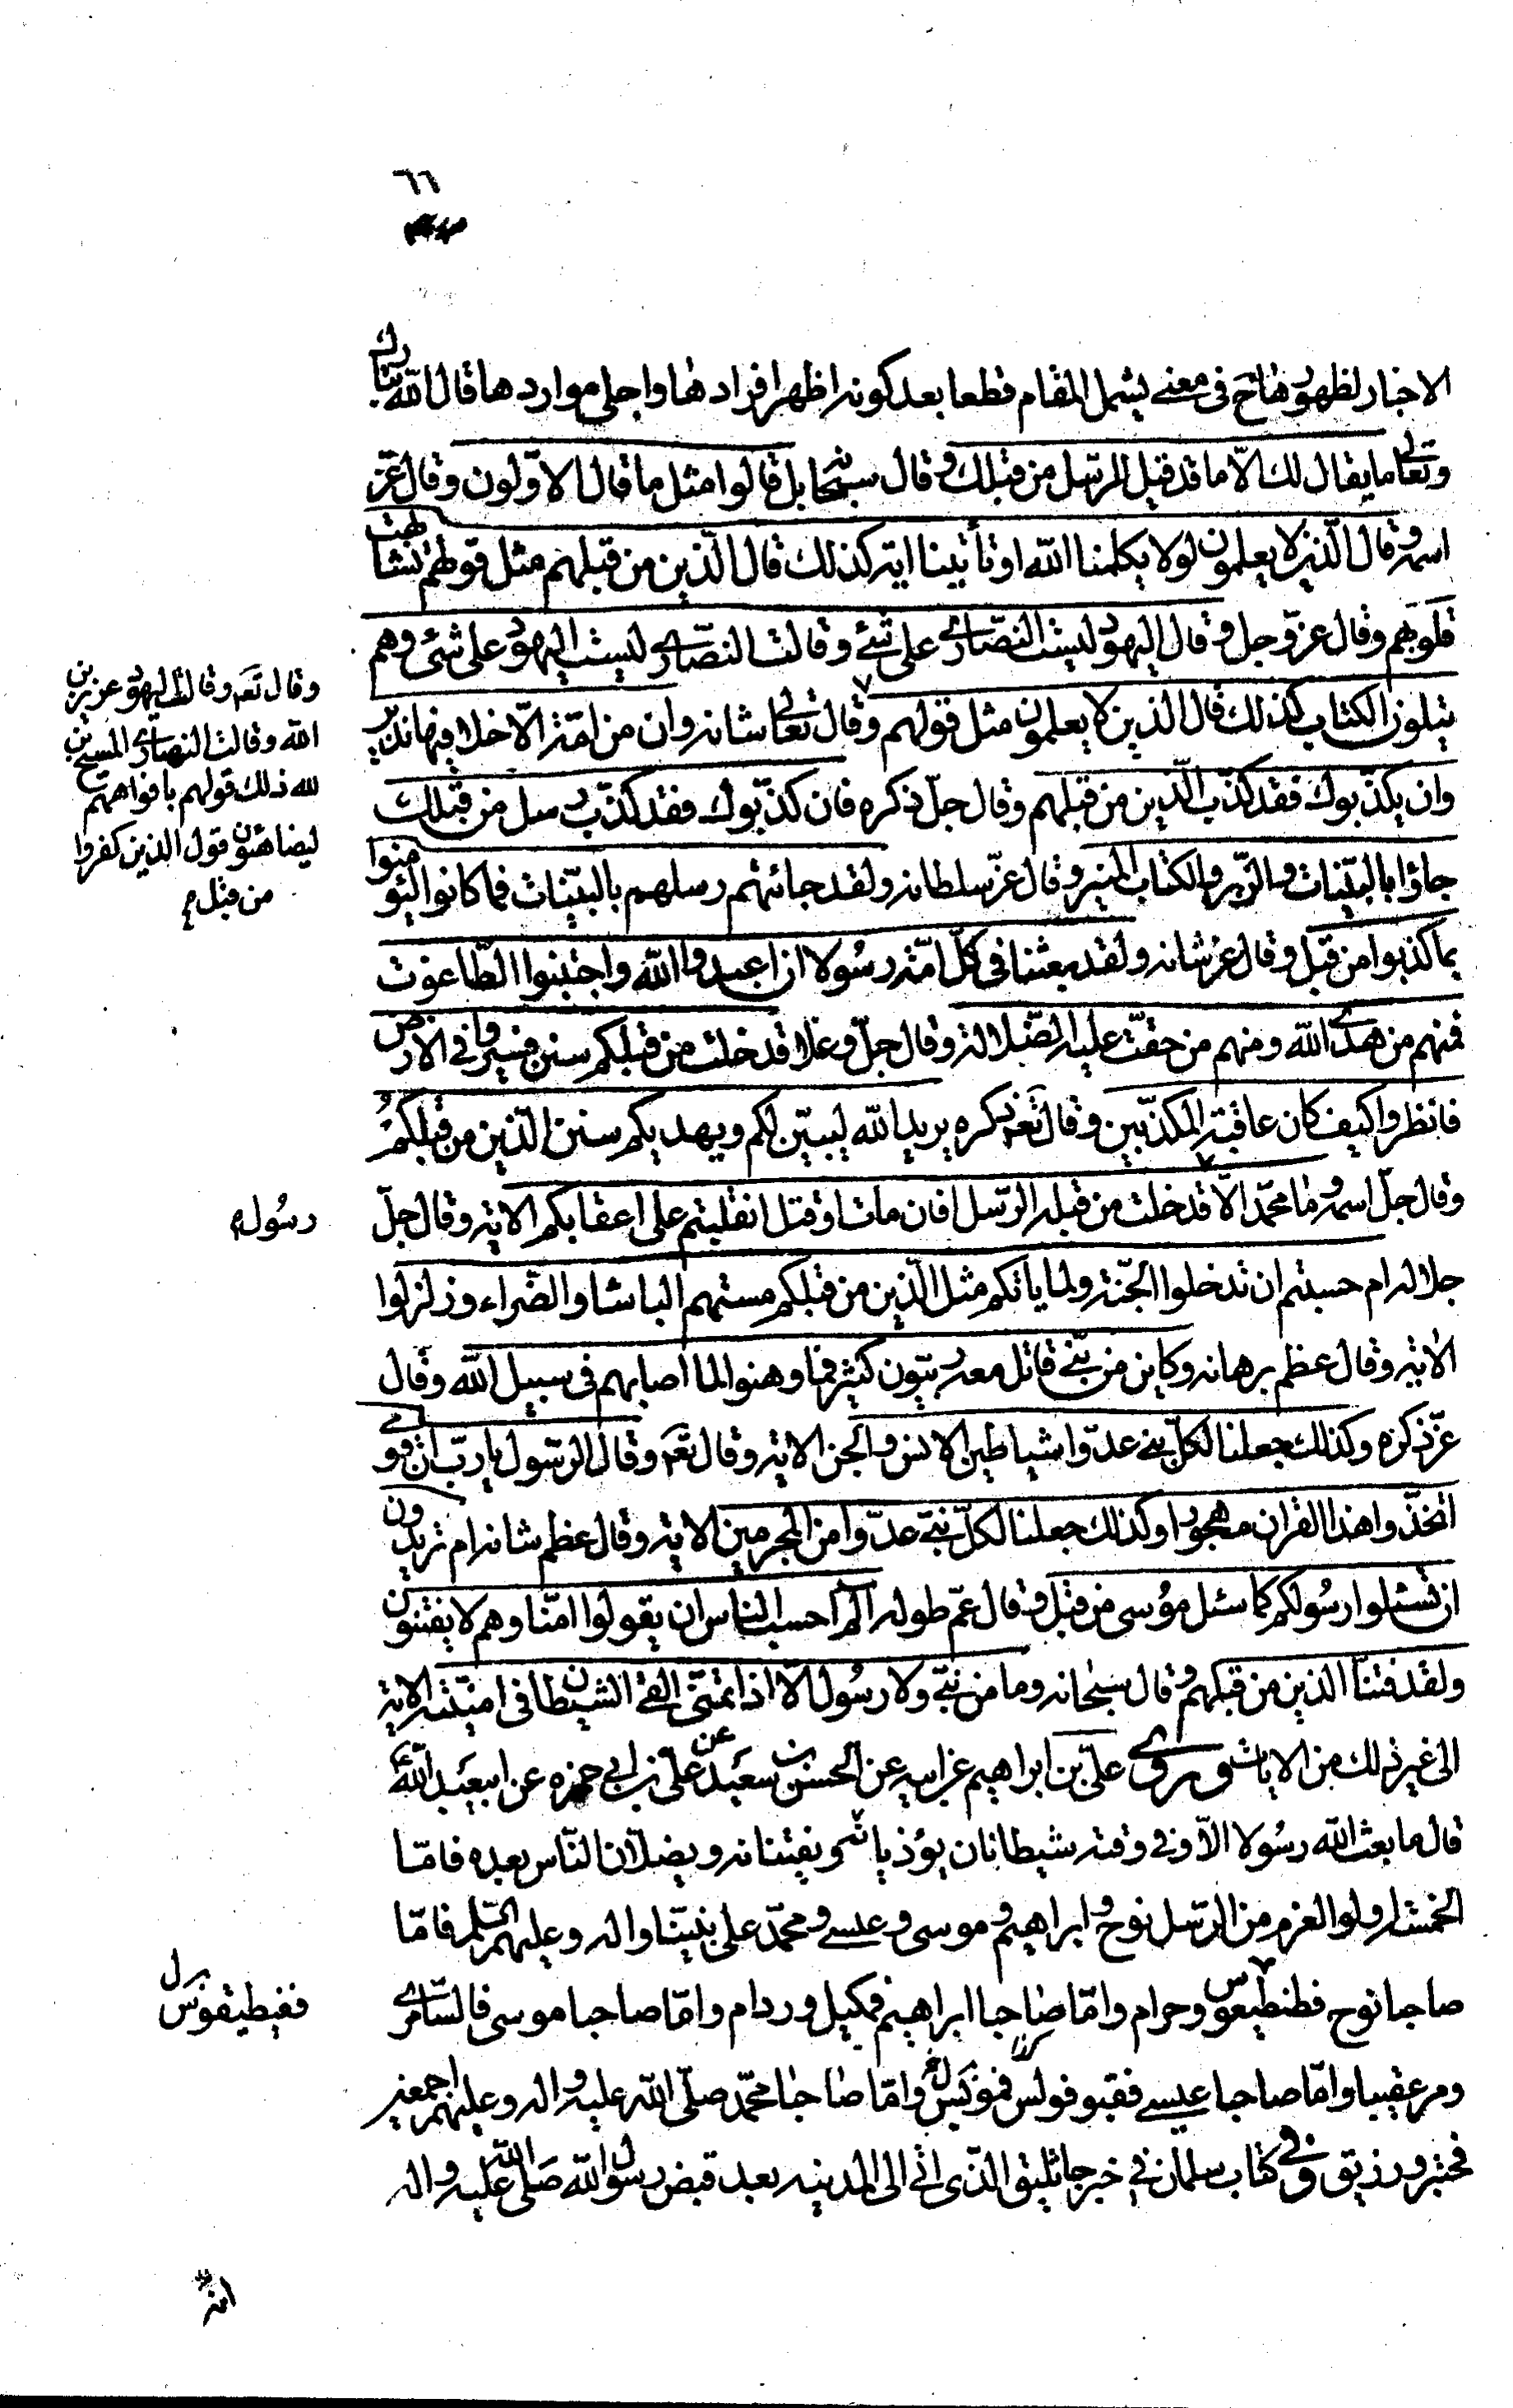 ٦٦
الاخبار لظهورها ح فى معنى يشمل المقام قطعا بعد كونه اظهر افرادها واجلى مواردها قال الله تبارك
وتعالى ما يقال لك الّا ما قد قيل للرّسل من قبلك وقال سبحانه بل قالوا مثل ما قال الاوّلون وقال عزّ
اسمه وقال الّذين لا يعلمون لولا يكلمنا الله او تأتينا اية كذلك قال الّذين من قبلهم مثل قولهم تشابهت
قلوبهم وقال عزّ وجل وقال اليهود ليست النّصارى على شئ وقالت النّصارى ليست اليهود على شئ وهم
يتلون الكتاب كذلك قال الذين لا يعلمون مثل قولهم وقال تعالى شانه وان من امّة الّا خلا فيها نذير
وان يكذّبوك فقد كذّب الّذين من قبلهم وقال جلّ ذكره فان كذّبوك فقد كذّب رسل من قبلك
جاؤا بالبيّنات والزّبر والكتاب المنير وقال عزّ سلطانه ولقد جائتهم رسلهم بالبيّنات فما كانوا ليؤمنوا
بما كذبوا من قبل وقال عزّ شانه ولقد بعثنا فى كلّ امّة رسُولا ان اعبدوا الله واجتنبوا الطّاغوت
فمنهم من هدى الله ومنهم من حقّت عليه الضّلالة وقال جلّ وعلا قد خلت من قبلكم سنن فسيروا فى الارض
فانظروا كيف كان عاقبة المكذّبين وقال تعه ذكره يريد الله ليبيّن لكم ويهديكم سنن الّذين من قبلكمُ
وقال جلّ اسمه وما محمّد الّا قد خلت من قبله الرّسل افان مات او قتل انقلبتم على اعقابكم الاية وقال جلّ
جلاله ام حسبتم ان تدخلوا الجّنة ولما ياتكم مثل الّذين من قبلكم مستهم الباساء والضّراء وزلزلوا
الاية وقال عظم برهانه وكاين من نبّى قاتل معه ربّيون كثير فما وهنوا لما اصابهم فى سبيل الله وقال
عزّ ذكره وكذلك جعلنا لكلّ نبى عدوّا شياطين الانس والجن الاية وقال تعه وقال الرّسول يا ربّ انّ قومى
اتخذوا هذا القران مهجورا وكذلك جعلنا لكلّ نبى عدّوا من المجرمين الاية وقال عظم شانه ام تريدون
ان تسئلوا رسُولكم كما سئل مُوسى من قبل وقال عمّ طوله الم احسب الناس ان يقولوا امنّا وهم لا يفتنون
ولقد فتنّا الذين من قبلهم وقال سبحانه وما من نبّى ولا رسُول الّا اذا تمنّى القى الشيطان فى امنيّته الاية
الى غير ذلك من الايات وروى علىّ بن ابراهيم عن ابيه عن الحسين بن سعيد عن علىّ بن ابى حمزه عن ابيعبد الله ع
قال ما بعث الله رسُولا الّا وفى وقته شيطانان يؤذيانه ويفتنانه ويضلّان النّاس بعده فامّا
الخمسة اولوا العزم من الرّسل نوح وابراهيم وموسى وعيسى ومحمّد على نبيّنا واله وعليهم السّلم فامّا
صاحبا نوح فطنطيعوس وحرام وامّا صاحبا ابراهيم فمكيل وردام وامّا صاحبا موسى فالسّامرى
ومرعقيبا وامّا صاحبا عيسى ففبو فولس فموكيس وامّا صاحبا محمّد صلّى الله عليه واله وعليهم اجمعين
فحبتر ورزيق وفى كتاب سلمان فى خبر جاثليق الّذى اتى الى المدينه بعد قبض رسول الله صَلّى الله عليه واله
وقال تعه وقالت اليهود عزير بن
الله وقالت النّصارى المسيح بن
لله ذلك قولهم بافواههم
ليضاهئون قول الذين كفروا
من قبل
رسُول
ففيطيقوس ل
انّه